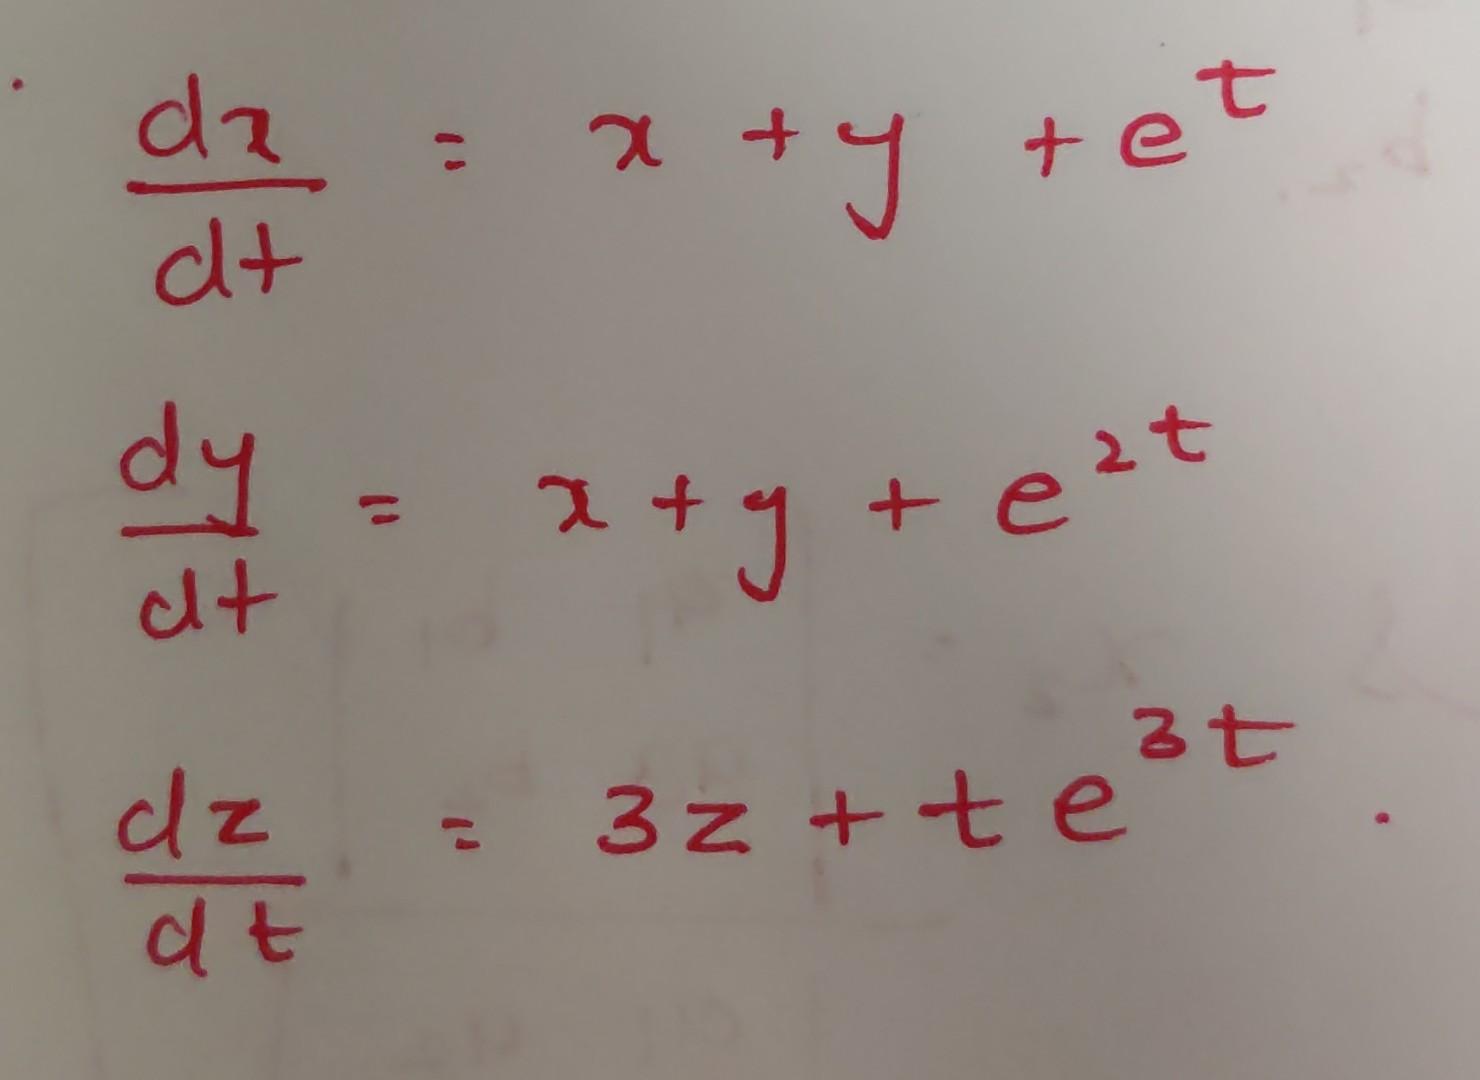 dx/dt = x + y + e^t
dy/dt = x + y + e^{2t}
dz/dt = 3z + t e^{3t}.